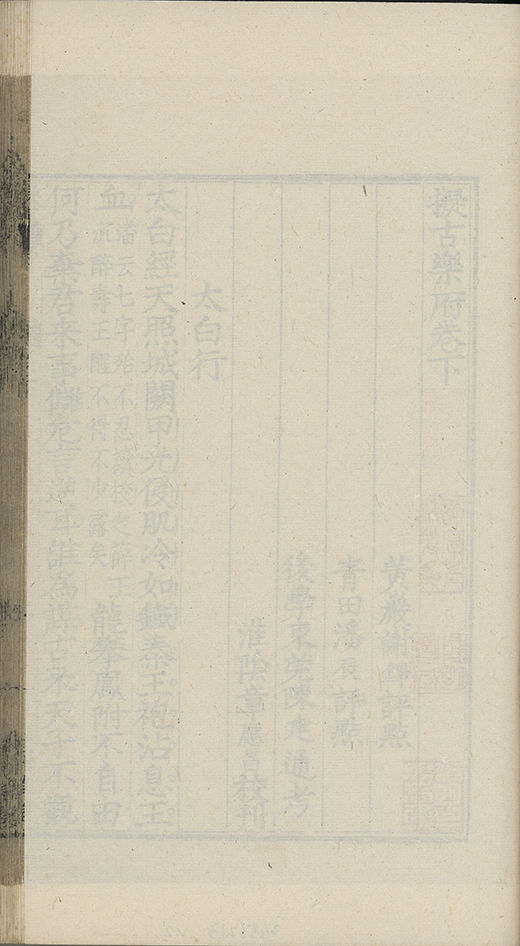 擬古樂府卷下
黃巖謝鐸評點
青田潘辰評點
後學東莞陳建通考
淮陰章應校刊
太白行
太白經天照城闕甲光侵肌冷如鐵秦王袍沾息王
血潘云七字殆不忍讀校之薛王沉醉壽王醒不得不少露矣龍攀鳳附不自由
何乃棄君來事讎危言逆耳誰為謀古來天子不觀